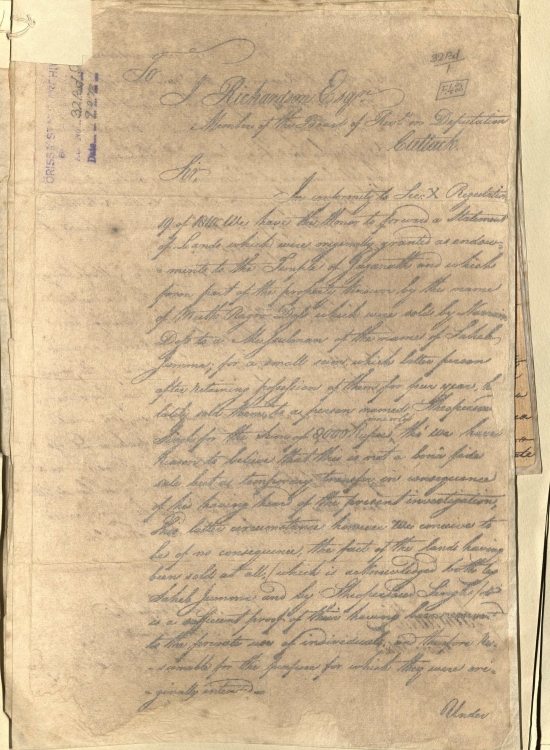 To
J. Richardson Esqr.
Member of the Board of Revn. on Deputation
Cuttack.
Sir,
In conformity to Sec. X Regulation
19 of 1810 We have the Honor to forward a Statement
of Lands which were originally granted as endow-
-ments to the Temple of and which
form part of the property known by the name
of which were sold by
Doss to a Musulman of the name of Saheb
Jumma, for a small sum, which latter person
after retaining possession of them for years, he
lately sold them, to a person named
Singh for the sum of 8,000 Rupees, We have
reason to believe that this is not a bona fide
sale but a temporary transfer, in consequence
of his having hear of the present investigation,
This latter circumstance however We conceive to
be of no consequence, the fact of the lands having
been sold at all, (which is acknowledged both by
Saheb Jumma and by Singh) it
is a sufficient proof of their having been
to the private use of individuals, and therefore Re-
-sumable for the purpose for which they were ori-
-ginally intend
Under